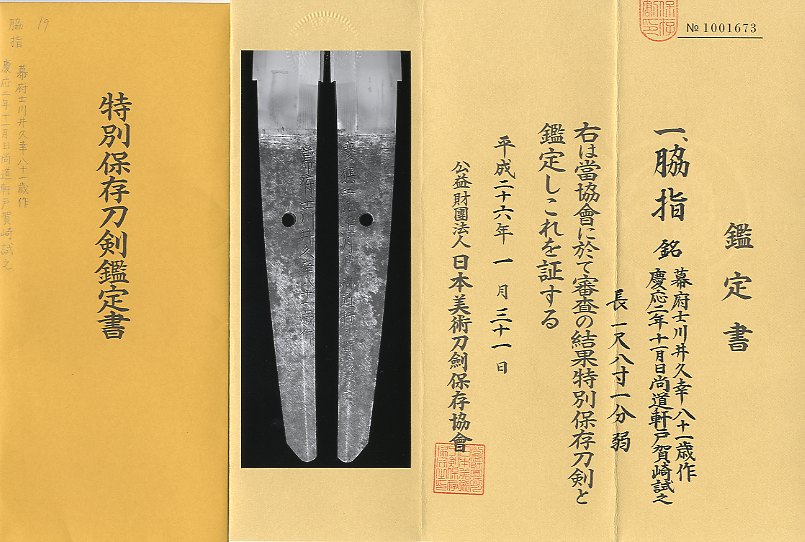 № 1001673
鑑定書
一、脇指 銘 幕府士川井久幸八十一歳作
慶応二年十一月日尚道軒戸賀崎試之
長一尺八寸一分弱
右は當協會に於て審査の結果特別保存刀剣と
鑑定しこれを証する
平成二十六年一月三十一日
公益財團法人日本美術刀劍保存協會
特別保存刀剣鑑定書
19
脇指
幕府士川井久幸八十一歳作
慶応二年十一月日尚道軒戸賀崎試之